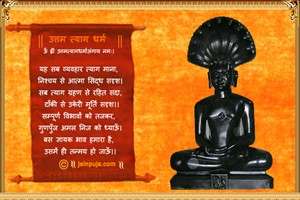 || उत्तम त्याग धर्म ||
ॐ ह्रीं उत्तमत्यागधर्मांगाय नमः।
यह सब व्यवहार त्याग माना,
निश्चय से आत्मा सिद्ध सदृश।
सब त्याग ग्रहण से रहित सदा,
टाँकी से उकेरी मूर्ति सदृश।।
सम्पूर्ण विभावों को तजकर,
गुणपुँज अमल निज को ध्याऊँ।
बस ज्ञायक भाव हमारा है,
उसमें ही तन्मय हो जाऊँ।।
© || jainpuja.com ||